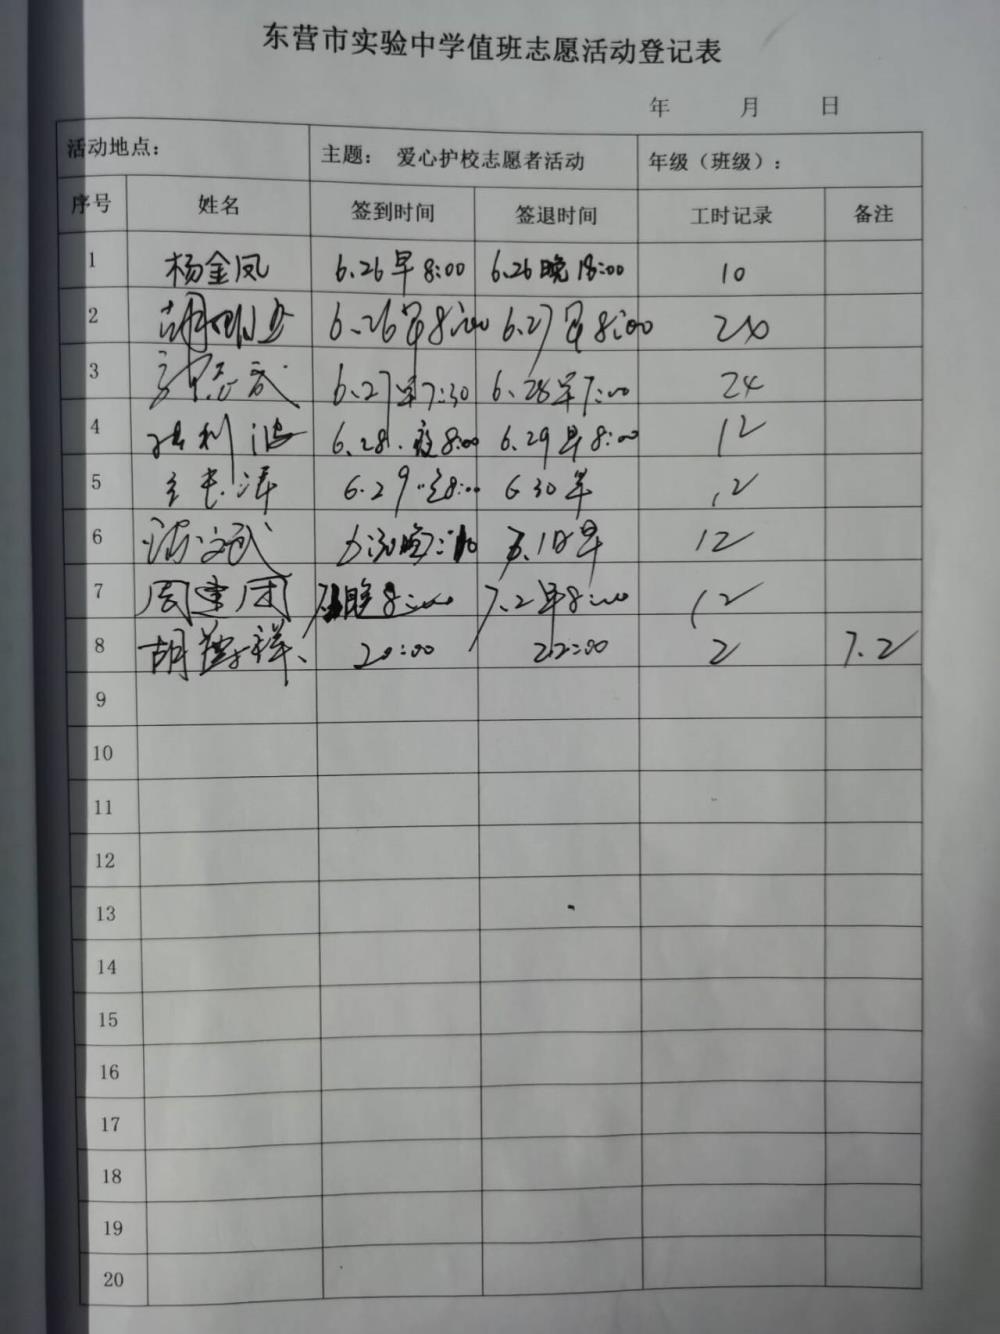 东营市实验中学值班志愿活动登记表
年 月 日
活动地点： 主题： 爱心护校志愿者活动 年级（班级）：
序号 姓名 签到时间 签退时间 工时记录 备注
1 杨金凤 6.26早8:00 6.26晚18:00 10
2 胡 6.26早8:00 6.27早8:00 24
3 武 6.27早7:30 6.28早7:00 24
4 利 6.28.夜8:00 6.29早8:00 12
5 6.29 8:00 6.30早 12
6 武 6.30晚 早 12
7 周建团 晚8:00 7.2早8:00 12
8 胡 祥、 20:00 22:00 2 7.2
9
10
11
12
13
14
15
16
17
18
19
20